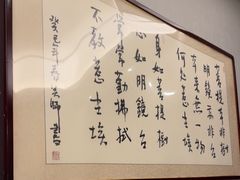 菩提本無樹
明鏡亦非台
本來無一物
何處惹塵埃
身如菩提樹
心如明鏡台
常常勤拂拭
不教惹塵埃
癸巳年春